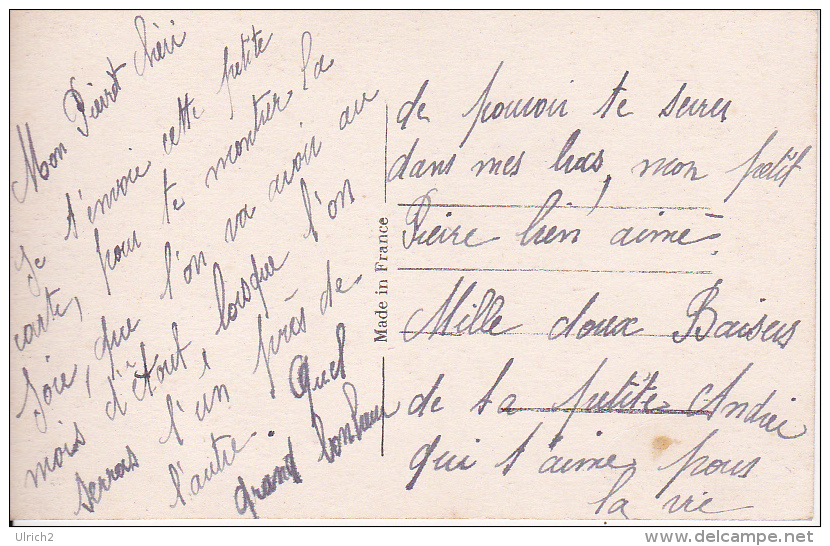 Mon Pierrot chéri
Je t'envoie cette petite
carte, pour te montrer la
joie, que l'on va avoir au
mois d'Août, lorsque l'on
serras l'un près de
l'autre. Quel
grand bonheur
Made in France
de pouvoir te serrer
dans mes bras, mon petit
Pierre bien aimé.
Mille doux Baisers
de ta petite Andrée
qui t'aime pour
la vie
Ulrich2
http://www.delcampe.net